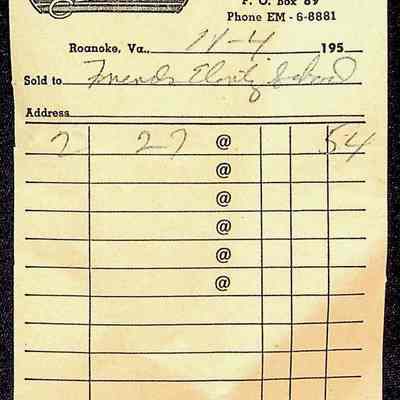 P. O. Box 89
Phone EM - 6-8881
Roanoke, Va., 11-4 195
Sold to Friends School
Address
2 27 @ 54
@
@
@
@
@